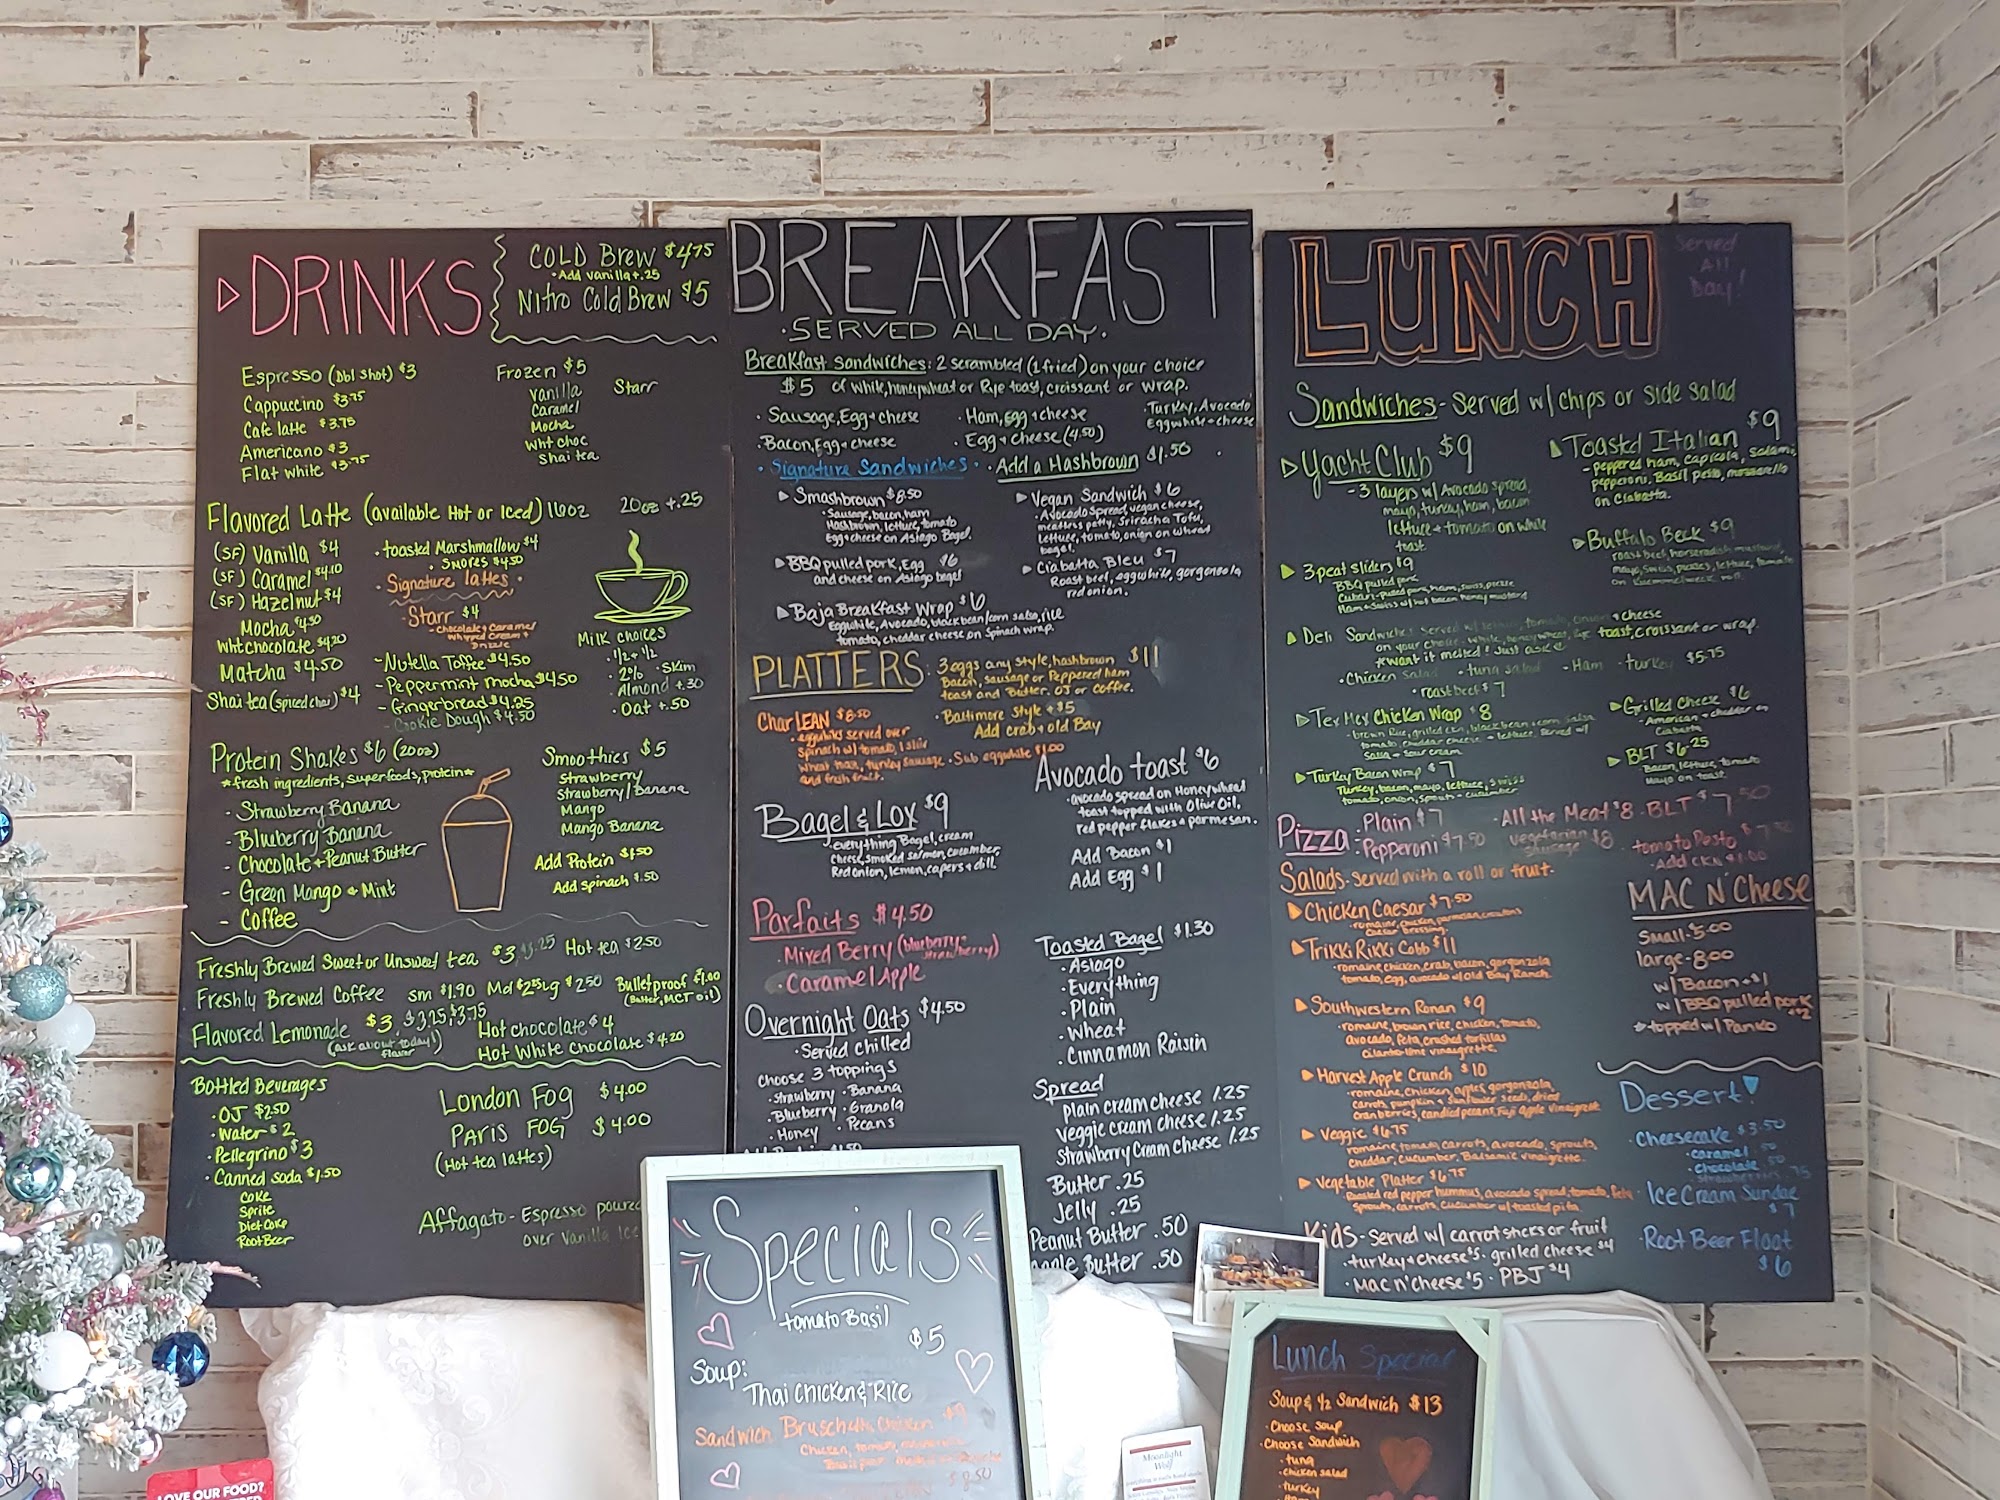 DRINKS
COLD Brew $4.75
• Add vanilla +.25
Nitro Cold Brew $5
Espresso (Dbl Shot) $3
Cappuccino $3.75
Cafe latte $3.75
Americano $3
Flat white $3.75
Frozen $5
Vanilla
Starr
Caramel
Mocha
Wht choc
Shai tea
Flavored Latte (available Hot or Iced) 16oz 20oz +.25
(SF) Vanilla $4
(SF) Caramel $4.10
(SF) Hazelnut $4
Mocha $4.30
Wht chocolate $4.20
Matcha $4.50
Shai tea (spiced chai) $4
• toasted Marshmallow $4
• SMORES $4.50
• Signature lattes •
• Starr $4
- Chocolate + Caramel
Whipped Cream +
Drizzle
- Nutella Toffee $4.50
- Peppermint mocha $4.50
- Gingerbread $4.25
- Cookie Dough $4.50
Milk choices
• 1/2 + 1/2
• 2% • Skim
• Almond +.30
• Oat +.50
Protein Shakes $6 (20oz)
*fresh ingredients, superfoods, protein*
- Strawberry Banana
- Blueberry Banana
- Chocolate + Peanut Butter
- Green Mango & Mint
- Coffee
Smoothies $5
Strawberry
Strawberry/Banana
Mango
Mango Banana
Add Protein $1.50
Add spinach $.50
Freshly Brewed Sweet or Unsweet tea $3 Hot tea $2.50
Freshly Brewed Coffee sm $1.90 Md $2.25 Lg $2.50 Bulletproof $1.00
(Butter, MCT oil)
Flavored Lemonade $3, $3.25, $3.75
(ask about today's flavor)
Hot chocolate $4
Hot White Chocolate $4.20
Bottled Beverages
• OJ $2.50
• Water $2
• Pellegrino $3
• Canned soda $1.50
Coke
Sprite
Diet Coke
Root Beer
London Fog $4.00
Paris Fog $4.00
(Hot tea lattes)
Affagato - Espresso poured
over Vanilla Ice
BREAKFAST
• SERVED ALL DAY •
Breakfast Sandwiches: 2 scrambled (1 fried) on your choice
$5 of white, honeywheat or Rye toast, croissant or wrap.
• Sausage, Egg + cheese
• Ham, Egg + cheese
• Turkey, Avocado
Eggwhite + cheese
• Bacon, Egg + cheese
• Egg + cheese (4.50)
• Signature Sandwiches •
• Add a Hashbrown $1.50
Smashbrown $8.50
• Sausage, bacon, ham
Hashbrown, lettuce, tomato
Egg + cheese on Asiago Bagel.
BBQ pulled pork, Egg $6
and cheese on Asiago bagel
Baja Breakfast Wrap $6
Eggwhite, Avocado, black bean/corn salsa, rice
tomato, cheddar cheese on Spinach wrap.
Vegan Sandwich $6
• Avocado Spread, vegan cheese,
meatless patty, Sriracha Tofu,
lettuce, tomato, onion on wheat
bagel.
Ciabatta Bleu $7
Roast beef, eggwhite, gorgonzola
red onion.
PLATTERS: 3 eggs any style, hashbrown $11
Bacon, sausage or Peppered ham
toast and Butter. OJ or Coffee.
• Baltimore Style + $5
Add crab + old Bay
Char LEAN $8.50
• eggwhites served over
spinach w/ tomato, 1 slice
wheat toast, turkey sausage
and fresh fruit.
• Sub eggwhite $1.00
Bagel & Lox $9
everything Bagel, cream
cheese, smoked salmon, cucumber,
Red onion, lemon, capers + dill.
Avocado toast $6
• avocado spread on Honeywheat
toast topped with Olive Oil,
red pepper flakes + parmesan.
Add Bacon $1
Add Egg $1
Parfaits $4.50
• Mixed Berry (blueberry-
strawberry)
• Caramel Apple
Overnight Oats $4.50
• Served chilled
Choose 3 toppings
• Strawberry • Banana
• Blueberry • Granola
• Honey • Pecans
Toasted Bagel $1.30
• Asiago
• Everything
• Plain
• Wheat
• Cinnamon Raisin
Spread
Plain cream cheese 1.25
Veggie cream cheese 1.25
Strawberry Cream Cheese 1.25
Butter .25
Jelly .25
Peanut Butter .50
Butter .50
LUNCH
Served
All
Day!
Sandwiches - served w/ chips or side salad
Yacht Club $9
- 3 layers w/ Avocado spread,
mayo, turkey, ham, bacon
lettuce + tomato on white
toast
Toasted Italian $9
- peppered ham, capicola, salami,
pepperoni, Basil pesto, mozzarella
on Ciabatta.
3 peat sliders $9
BBQ pulled pork
Cuban - pulled pork, ham, swiss, pickle
Ham + swiss w/ hot bacon honey mustard
Buffalo Beck $9
roast beef, horseradish mustard,
mayo, swiss, pickles, lettuce, tomato
on Kummelweck roll.
Deli Sandwiches served w/ lettuce, tomato, onion + cheese
on your choice - white, honeywheat, Rye toast, croissant or wrap.
*want it melted? Just ask
• Chicken salad • tuna salad • Ham • turkey $5.75
• roast beef $7
Tex Mex Chicken Wrap $8
- brown Rice, grilled ckn, black bean + corn salsa
tomato, cheddar cheese + lettuce. Served w/
salsa + sour cream
Grilled Cheese $6
- American + cheddar on
Ciabatta
Turkey Bacon Wrap $7
Turkey, bacon, mayo, lettuce, swiss
tomato, onion, sprouts + cucumber
BLT $6.25
Bacon, lettuce, tomato
Mayo on toast.
Pizza: • Plain $7
• Pepperoni $7.50
• All the Meat $8 • BLT $7.50
Vegetarian $8
Sausage
tomato Pesto $7.50
• Add CKN $1.00
Salads - served with a roll or fruit.
Chicken Caesar $7.50
• romaine, chicken, parmesan, croutons
Caesar Dressing.
Trikki Rikki Cobb $11
• romaine, chicken, crab, bacon, gorgonzola
tomato, egg, avocado w/ Old Bay Ranch.
Southwestern Ronan $9
• romaine, brown rice, chicken, tomato,
avocado, feta, crushed tortillas
cilantro-lime vinaigrette.
Harvest Apple Crunch $10
• romaine, chicken, apples, gorgonzola,
carrots, pumpkin + sunflower seeds, dried
cranberries, candied pecans, Fuji apple vinaigrette
Veggie $6.75
romaine, tomato, carrots, avocado, sprouts,
cheddar, cucumber. Balsamic vinaigrette.
Vegetable Platter $6.75
Roasted red pepper hummus, avocado spread, tomato, feta
sprouts, carrots, cucumber w/ toasted pita
Kids - served w/ carrot sticks or fruit
• turkey + cheese $5 • grilled cheese $4
• Mac n' cheese $5 • PBJ $4
MAC N' Cheese
Small - 5.00
large - 8.00
w/ Bacon + $1
w/ BBQ pulled pork
+$2
*topped w/ Panko
Dessert
• Cheesecake $3.50
• caramel .50
• chocolate .50
strawberries .75
• Ice Cream Sundae
$7
• Root Beer Float
$6
Specials
tomato Basil
$5
Soup:
Thai Chicken & Rice
Sandwich Bruschetta Chicken $9
Chicken, tomato, mozzarella
$8.50
Lunch Special
Soup & 1/2 Sandwich $13
• Choose Soup
• Choose Sandwich
• tuna
• chicken salad
• turkey
• Ham
Moonlight
Wolf
LOVE OUR FOOD?